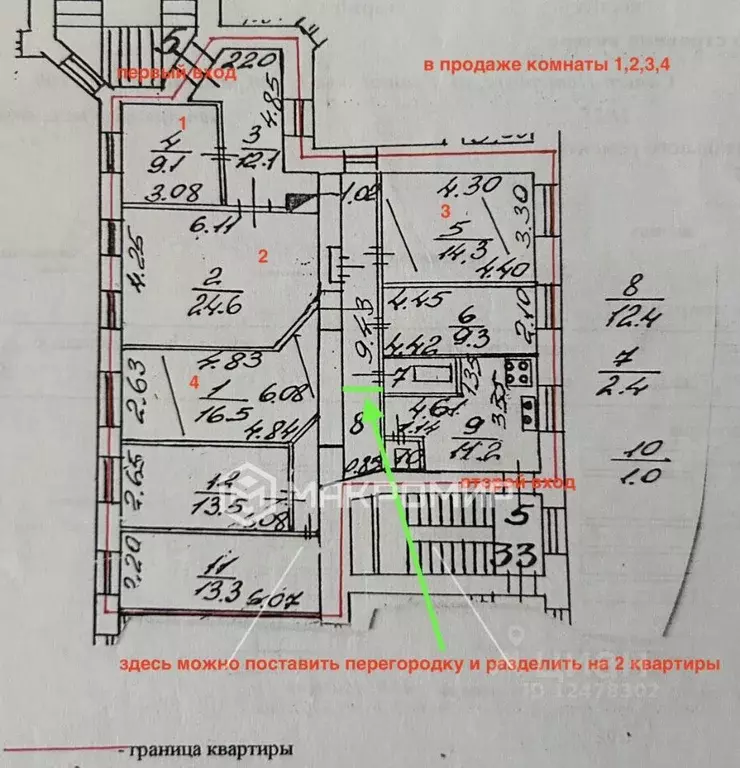 5
первый вход
220
в продаже комнаты 1,2,3,4
4.85
1
4
9.1
3
12.1
3.08
1.02
4.30
3
3.30
6.11
5
14.3
2
4.40
4.25
2
24.6
8
12.4
4.45
6
9.3
2.10
9.43
4.42
4.83
7
1.35
7
2.4
4
2.63
1
16.5
6.08
4.61
3.55
4.84
8
1.14
9
11.2
10
1.0
2.65
12
13.5
0.85
10
второй вход
МАКРОМИР
5
33
2.20
11
13.3
6.07
здесь можно поставить перегородку и разделить на 2 квартиры
ЦИАН
ID 12478302
- граница квартиры